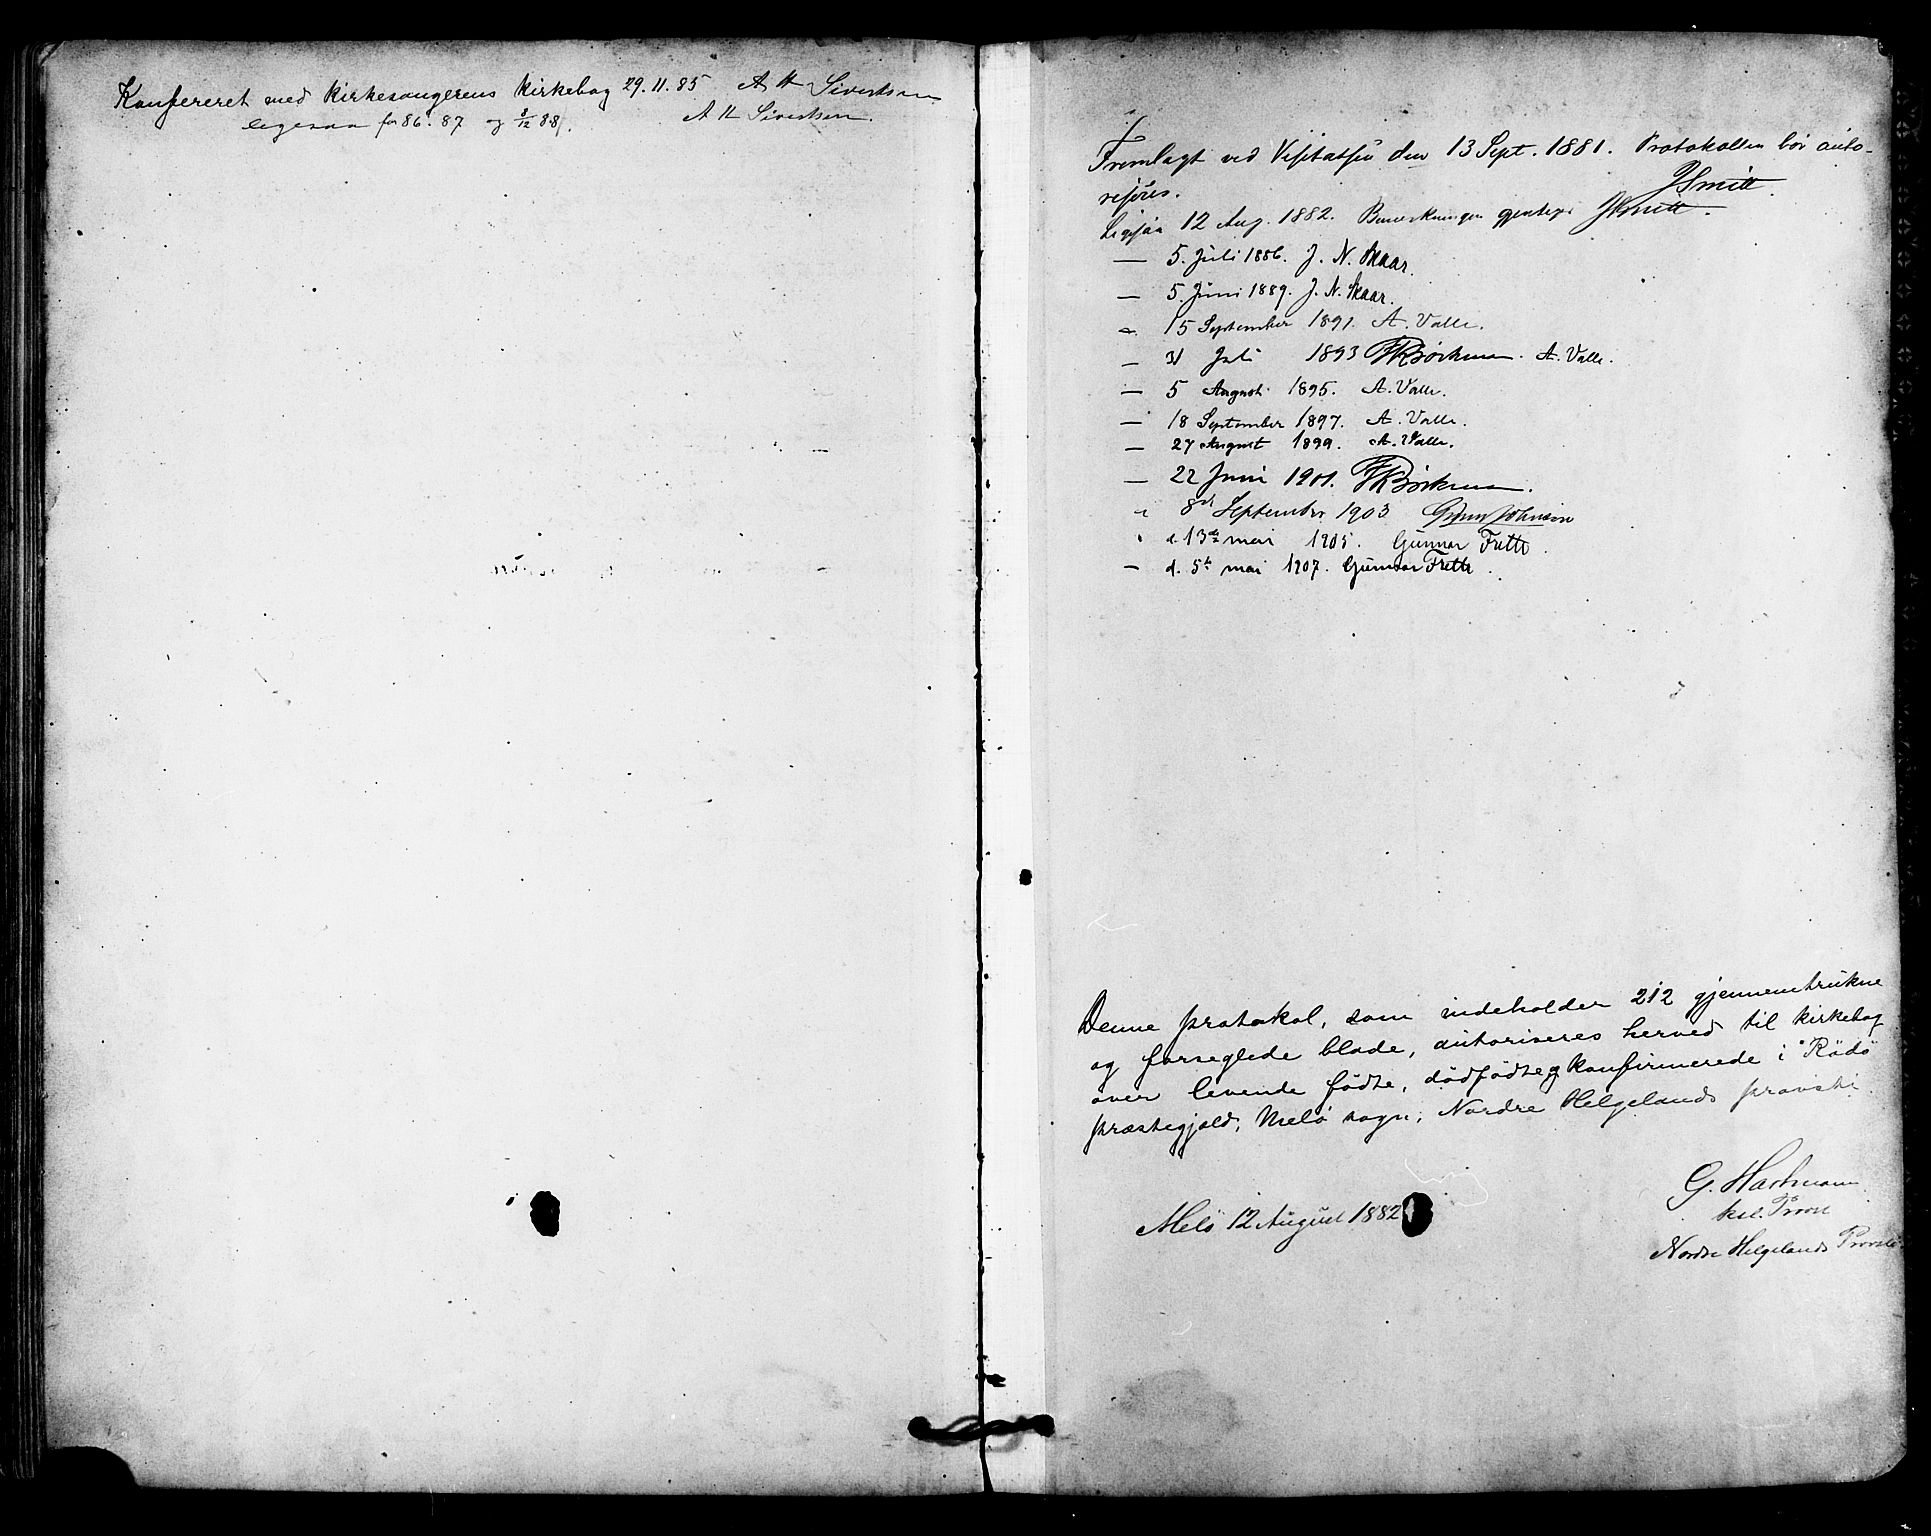 Konfereret med Kirkesangerens Kirkebog 29.11.85 A H Sivertsen
ligesaa for 86. 87 og 8/12 88. A H Sivertsen.
Fremlagt ved Visitatsen den 13 Sept. 1881. Protokollen bör auto-
riseres. JSmitt
Ligesaa 12 Aug. 1882. Bemerkningen gjentages JSmitt.
— 5. Juli 1886. J. N. Skaar.
— 5. Juni 1889. J. N. Skaar.
— 15 September 1891. A. Valle.
— 31 Juli 1893 Bøckman. A. Valle.
— 5 August 1895. A. Valle.
— 18 September 1897. A. Valle.
— 27 August 1899. A. Valle.
— 22 Juni 1901. Bøckman.
8de September 1903
d. 13de mai 1905. Gunnar Frette.
— d. 5te mai 1907. Gunnar Frette.
Denne protokol, som indeholder 212 gjennemtrukne
og forseglede blade, autoriseres herved til kirkebog
over levende födte, dödfödte og konfirmerede i Rödö
præstegjeld, Melö sogn, Nordre Helgelands provsti.
G. Hartmann
kst. Provst
Melö 12 August 1882
Nordre Helgelands Provsti